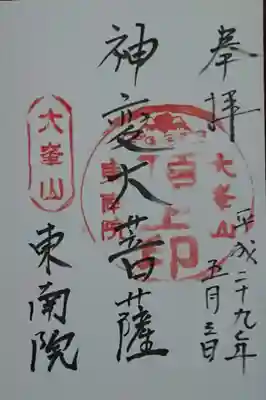 奉拝
平成二十九年
五月三日
大峯山
頂上
印
東南院
神変大菩薩
大峯山
東南院